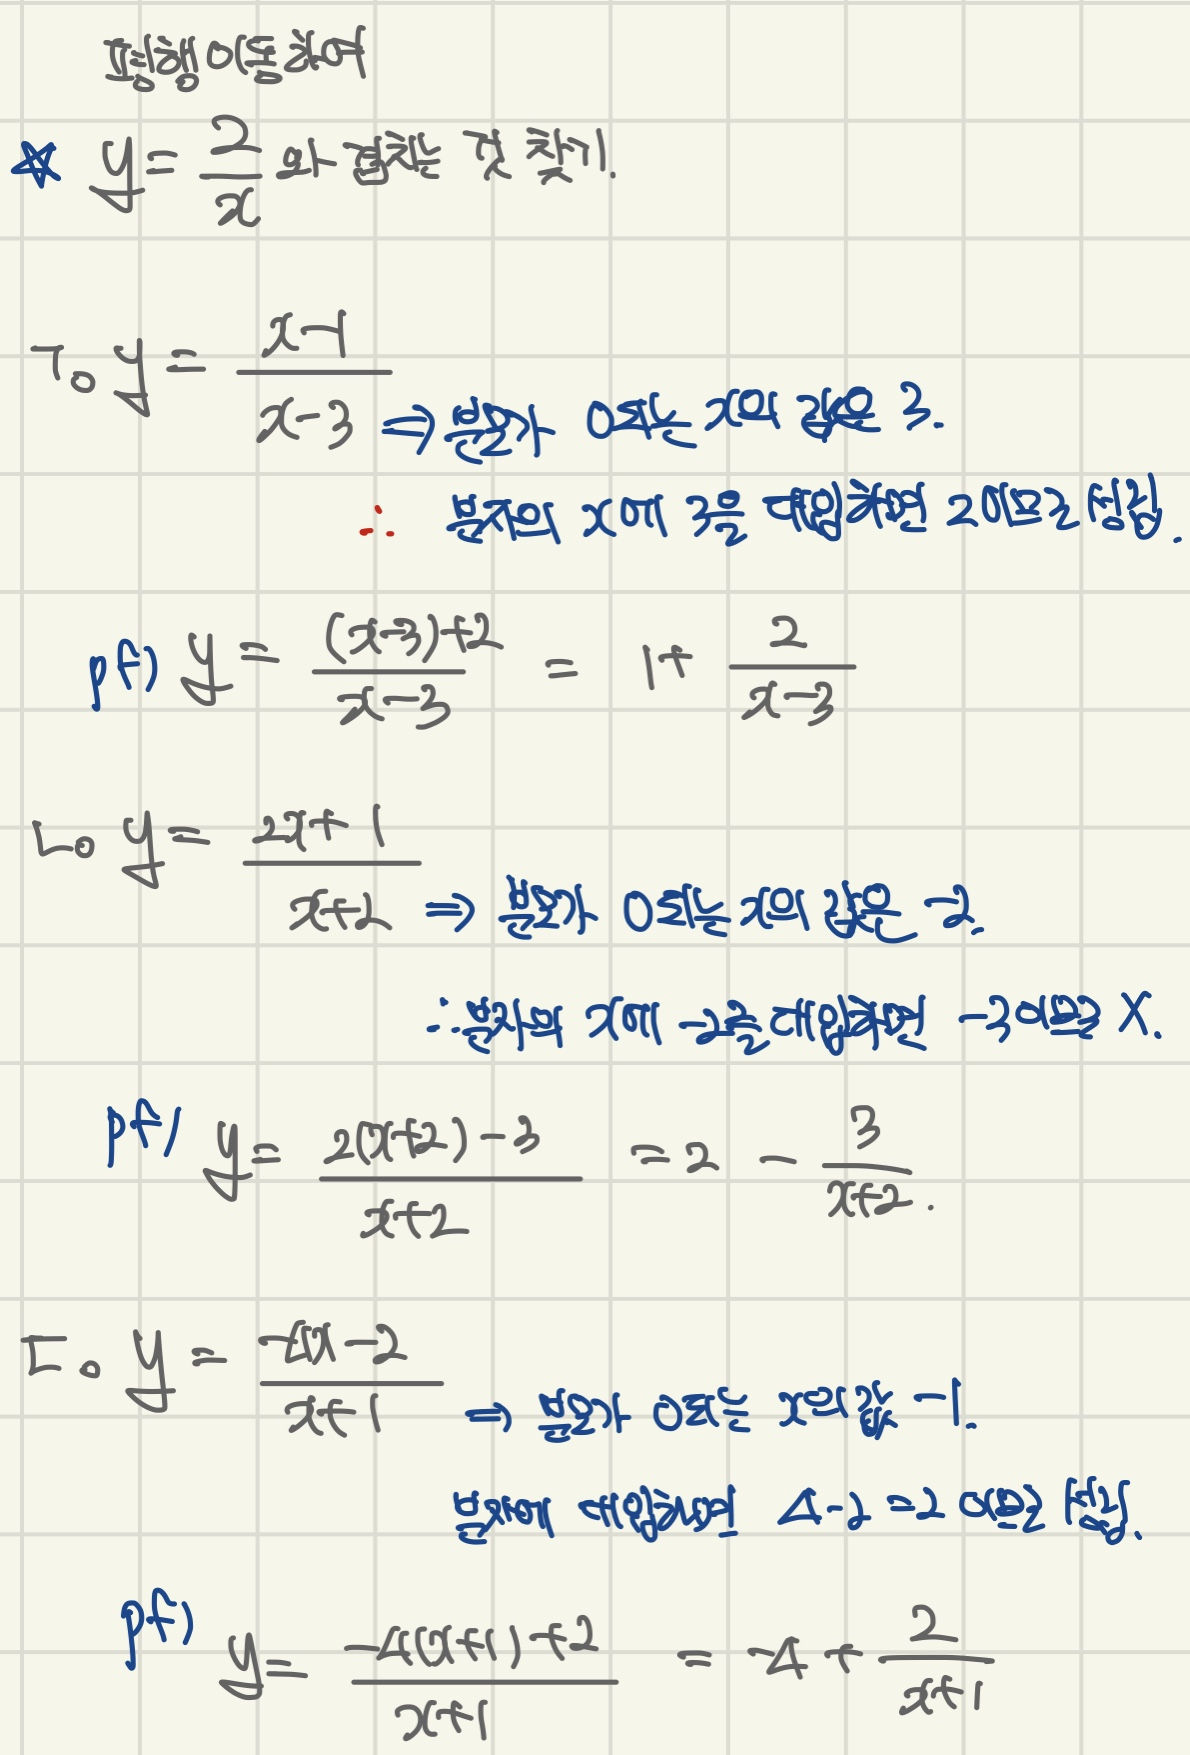 평행이동하여
☆ y = 2/x 와 겹치는 것 찾기.
ㄱ. y = (x-1)/(x-3) ⇒ 분모가 0되는 x의 값은 3.
∴ 분자의 x에 3을 대입하면 2이므로 성립.
pf) y = ((x-3)+2)/(x-3) = 1 + 2/(x-3)
ㄴ. y = (2x+1)/(x+2) ⇒ 분모가 0되는 x의 값은 -2.
∴ 분자의 x에 -2를 대입하면 -3이므로 X.
pf) y = (2(x+2)-3)/(x+2) = 2 - 3/(x+2).
ㄷ. y = (-4x-2)/(x+1) ⇒ 분모가 0되는 x의 값 -1.
분자에 대입하면 4-2=2 이므로 성립.
pf) y = (-4(x+1)+2)/(x+1) = -4 + 2/(x+1)